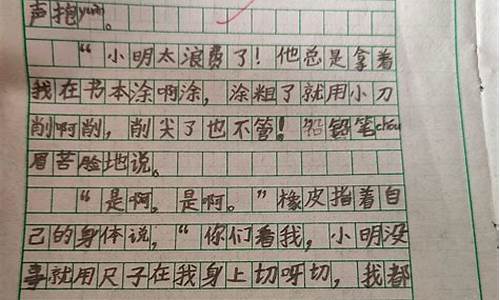 声抱yuàn。
“小明太浪费了！他总是拿着
我在书本涂啊涂，涂粗了就用小刀
削啊削，削尖了也不管！”铅笔chou
眉苦脸地说。
“是啊，是啊。”橡皮指着自
己的身体说，“你们看我，小明没
事就用尺子在我身上切呀切，我都